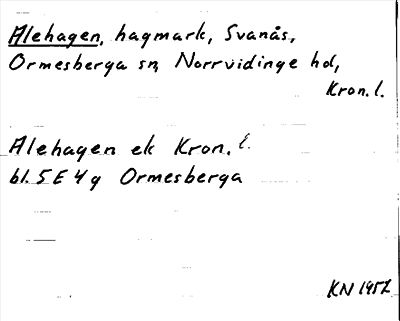 Alehagen, hagmark, Svanås,
Ormesberga sn, Norrvidinge hd,
Kron. l.
Alehagen ek Kron. l.
bl. 5E4g Ormesberga
KN 1957